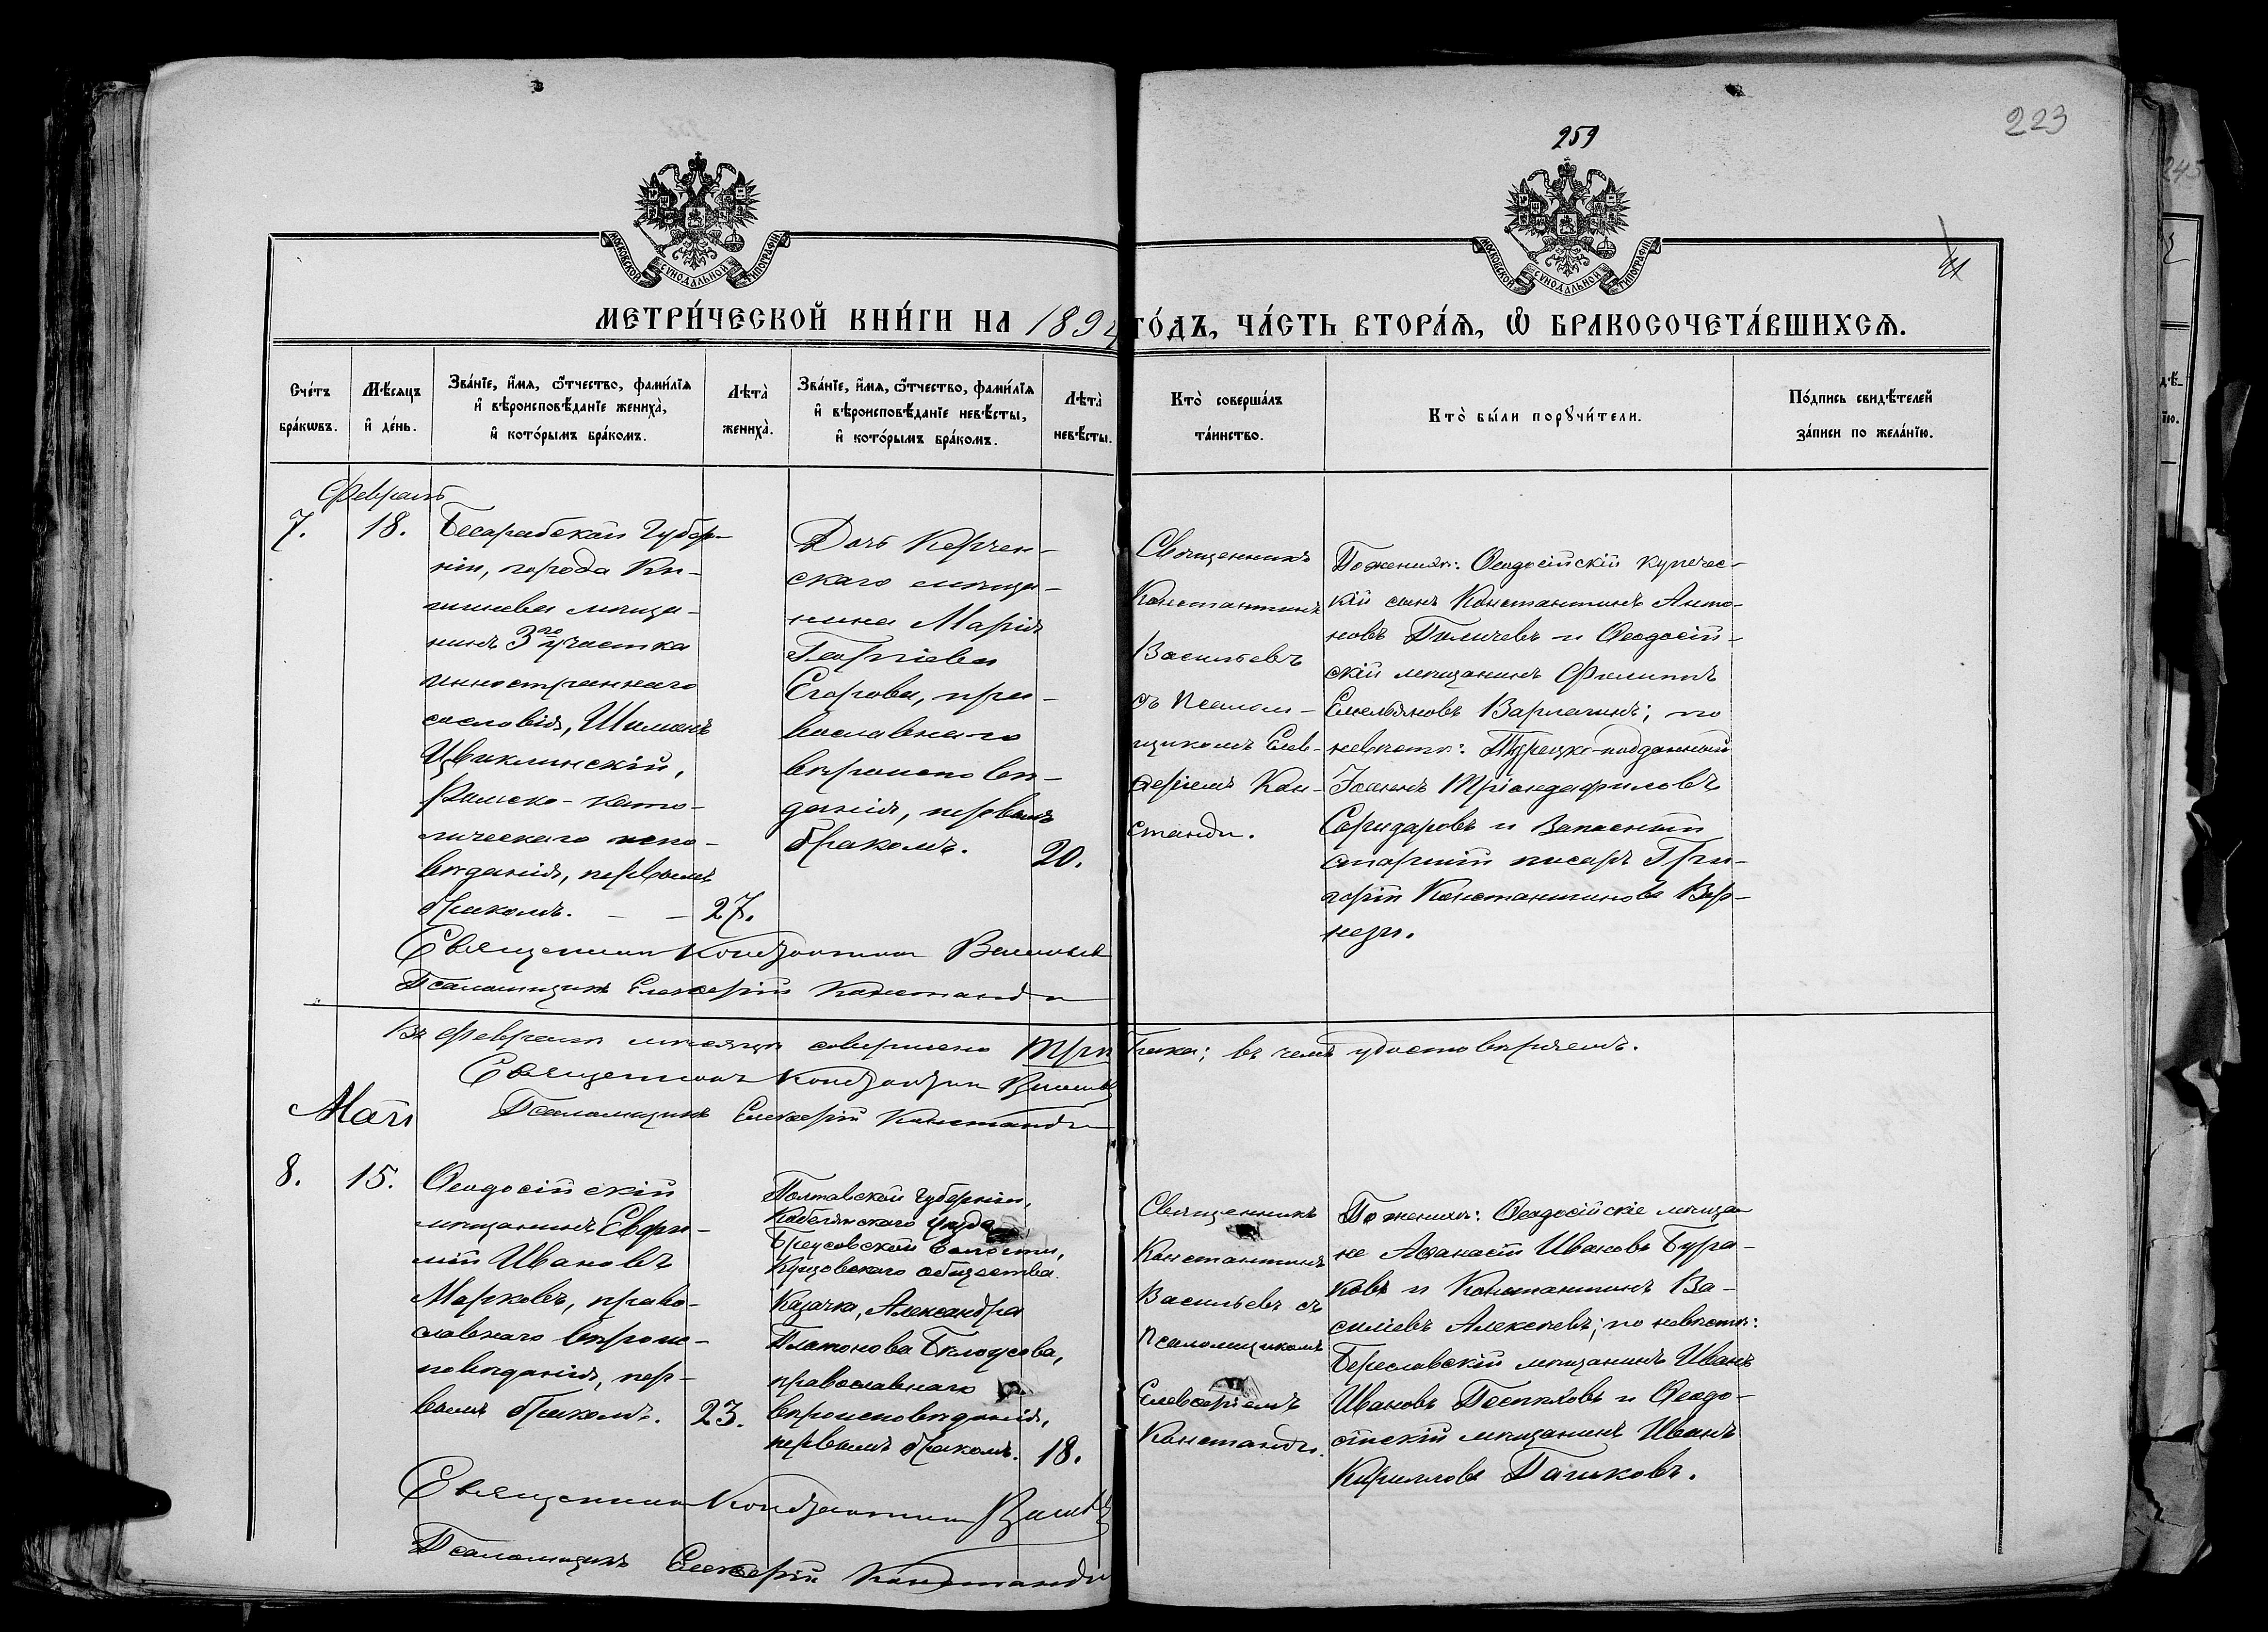 223
259
МОСКОВСКОЙ СѴНОДАЛЬНОЙ ТИПОГРАФІИ
МОСКОВСКОЙ СѴНОДАЛЬНОЙ ТИПОГРАФІИ
41
МЕТРИ́ЧЕСКОЙ КНИ́ГИ НА 1894 ГО́ДЪ, ЧА́СТЬ ВТОРА́Ѧ, Ѽ БРАКОСОЧЕТА́ВШИХСѦ.
Сче́тъ
бра́кѡвъ.
Мѣ́сяцъ
и҆ де́нь.
Зва́нїе, и҆́мѧ, ѻ҆́тчество, фами́лїѧ
и҆ вѣроисповѣ́данїе жениха̀,
и҆ кото́рымъ бра́комъ.
Лѣта̀
жениха̀.
Зва́нїе, и҆́мѧ, ѻ҆́тчество, фами́лїѧ
и҆ вѣроисповѣ́данїе невѣ́сты,
и҆ кото́рымъ бра́комъ.
Лѣта̀
невѣ́сты.
Кто̀ соверша́лъ
та́инство.
Кто̀ бы́ли порꙋчи́тели.
По́дпись свидѣ́телей
за́писи по жела́нїю.
Февраль
7.
18.
Бесарабской Губер-
ніи, города Ки-
шинева мѣща-
нинъ 3го участка
иностраннаго
сословія, Шимонъ
Цвиклинскій,
Римско-като-
лическаго испо-
вѣданія, первымъ
бракомъ. - -
27.
Дочь Керчен-
скаго мѣща-
нина Марія
Георгіева
Егорова, пра-
вославнаго
вѣроисповѣ-
данія, первымъ
бракомъ.
20.
Священникъ
Константинъ
Васильевъ
съ Псалом-
щикомъ Елев-
ѳеріемъ Кон-
станди.
По женихѣ: Ѳеодосійскій купечес-
кій сынъ Константинъ Анто-
новъ и Ѳеодосій-
скій мѣщанинъ Филиппъ
Емельяновъ по
невѣстѣ: Турецко-подданный
Іоаннъ Тріандафиловъ
и Запасный
старшій писарь Гри-
горій Константиновъ Вер-
Священникъ Константинъ Васильевъ
Псаломщикъ Елевѳерій Константи
Въ Февралѣ мѣсяцѣ совершено три брака; въ чемъ удостовѣряемъ.
Священникъ Константинъ Васильевъ
Псаломщикъ Елевѳерій Константи
Мартъ
8.
15.
Ѳеодосійскій
мѣщанинъ Евфи-
мій Ивановъ
Марковъ, право-
славнаго вѣроис-
повѣданія, пер-
вымъ бракомъ.
23.
Полтавской Губерніи,
Кобелякскаго уѣзда
Бреусовской волости,
общества
Казачка, Александра
Платонова Бѣлоусова,
православнаго
вѣроисповѣданія,
первымъ бракомъ.
18.
Священникъ
Константинъ
Васильевъ съ
Псаломщикомъ
Елевѳеріемъ
Констанди.
По женихѣ: Ѳеодосійскіе мѣща-
не Аѳанасій Ивановъ Бура-
ковъ и Константинъ Ва-
силіевъ Алексѣевъ; по невѣстѣ:
Бериславскій мѣщанинъ Иванъ
Ивановъ Поспѣховъ и Ѳеодо-
сійскій мѣщанинъ Иванъ
Кирилловъ Пашковъ.
Священникъ Константинъ Васильевъ
Псаломщикъ Елевѳерій Константи